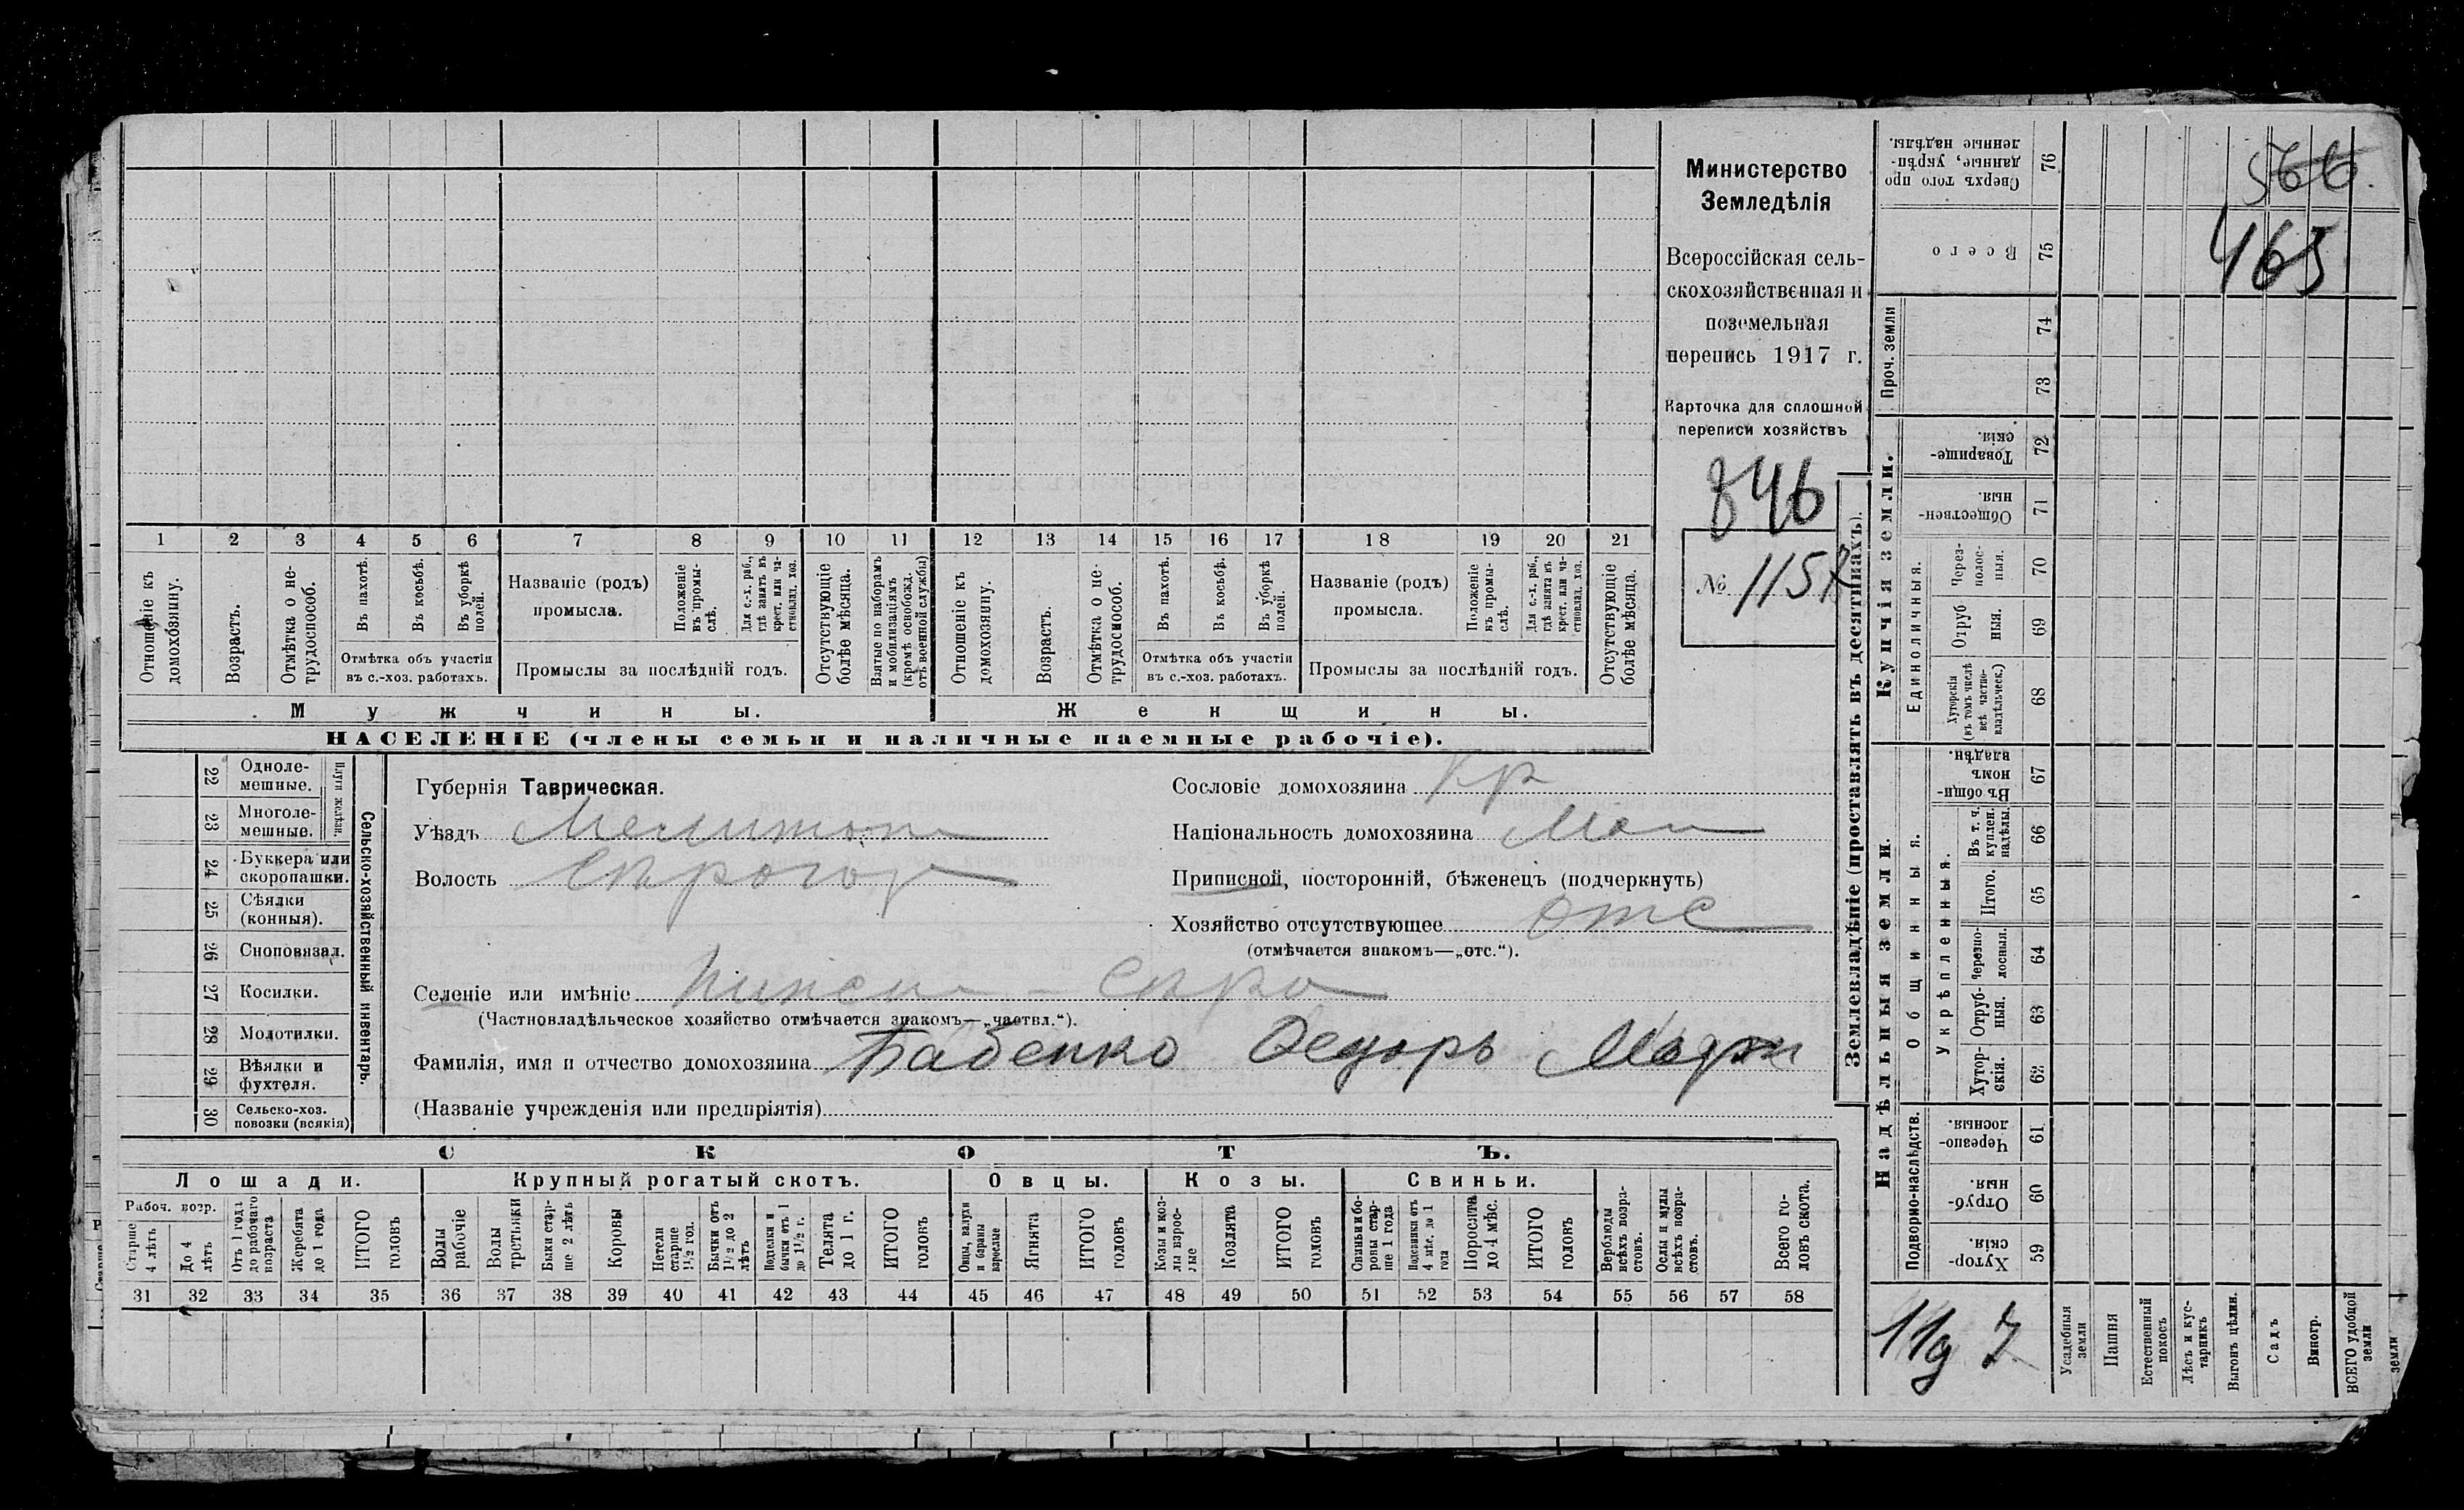 Министерство
Земледѣлія
Всероссійская сель-
скохозяйственная и
поземельная
перепись 1917 г.
Карточка для сплошной
переписи хозяйствъ
846
№ 1157
1 2 3 4 5 6 7 8 9 10 11 12 13 14 15 16 17 18 19 20 21
Отношеніе къ домохозяину.
Возрастъ.
Отмѣтка о не-трудоспособ.
Въ пахотѣ.
Въ косьбѣ.
Въ уборкѣ полей.
Отмѣтка объ участіи въ с.-хоз. работахъ.
Названіе (родъ) промысла.
Положеніе въ промы-слѣ.
Для с.-х. раб., гдѣ занятъ въ крест. или ча-стновлад. хоз.
Промыслы за послѣдній годъ.
Отсутствующіе болѣе мѣсяца.
Взятые по наборамъ и мобилизаціямъ (кромѣ освобожд. отъ военной службы)
Отношеніе къ домохозяину.
Возрастъ.
Отмѣтка о не-трудоспособ.
Въ пахотѣ.
Въ косьбѣ.
Въ уборкѣ полей.
Отмѣтка объ участіи въ с.-хоз. работахъ.
Названіе (родъ) промысла.
Положеніе въ промы-слѣ.
Для с.-х. раб., гдѣ занята въ крест. или ча-стновлад. хоз.
Промыслы за послѣдній годъ.
Отсутствующіе болѣе мѣсяца.
Мужчины.
Женщины.
НАСЕЛЕНІЕ (члены семьи и наличные наемные рабочіе).
22 Одноле-мешные.
23 Многоле-мешные.
Плуги желѣзн.
24 Буккера или скоропашки.
25 Сѣялки (конныя).
26 Сноповязал.
27 Косилки.
28 Молотилки.
29 Вѣялки и фухтеля.
30 Сельско-хоз. повозки (всякія)
Сельско-хозяйственный инвентарь.
Губернія Таврическая.
Уѣздъ Мелитоп
Волость
Сословіе домохозяина Кр
Національность домохозяина Мал
Приписной, посторонній, бѣженецъ (подчеркнуть)
Хозяйство отсутствующее отс
(отмѣчается знакомъ—„отс.“).
Селеніе или имѣніе
(Частновладѣльческое хозяйство отмѣчается знакомъ—„частвл.“).
Фамилія, имя и отчество домохозяина Бабенко Ѳедоръ
(Названіе учрежденія или предпріятія)
СКОТЪ.
Лошади.
Крупный рогатый скотъ.
Овцы.
Козы.
Свиньи.
Рабоч. возр.
Старше 4 лѣтъ
До 4 лѣтъ
Отъ 1 года до рабочаго возраста
Жеребята до 1 года
ИТОГО головъ
Волы рабочіе
Волы третьяки
Быки стар-ше 2 лѣтъ
Коровы
Нетели старше 1½ год.
Бычки отъ 1½ до 2 лѣтъ
Подтелки и бычки отъ 1 до 1½ г.
Телята до 1 г.
ИТОГО головъ
Овцы, валухи и бараны взрослые
Ягнята
ИТОГО головъ
Козы и коз-лы взрос-лые
Козлята
ИТОГО головъ
Свиньи и бо-ровы стар-ше 1 года
Подсвинки отъ 4 мѣс. до 1 года
Поросята до 4 мѣс.
ИТОГО головъ
Верблюды всѣхъ возра-стовъ.
Ослы и мулы всѣхъ возра-стовъ.
Всего го-ловъ скота.
31 32 33 34 35 36 37 38 39 40 41 42 43 44 45 46 47 48 49 50 51 52 53 54 55 56 57 58
Землевладѣніе (проставлять въ десятинахъ).
566.
465
Сверхъ того про данные, укрѣп-ленные надѣлы. 76
Всего 75
Проч. земли
74
73
Купчія земли.
Товарище-скія. 72
Обществен-ныя. 71
Единоличныя.
Через-полос-ныя. 70
Отруб ныя. 69
Хуторскія (въ томъ числѣ всѣ частно-владѣльческ.) 68
Надѣльныя земли.
Общинныя.
Въ общи-номъ владѣн. 67
Укрѣпленныя.
Въ т. ч. куплен. надѣлы 66
Итого. 65
Черезпо-лосныя. 64
Отруб-ныя. 63
Хутор-скія. 62
Подворно-наслѣдств.
Черезпо-лосныя. 61
Отруб-ныя. 60
Хутор-скія. 59
Усадебныя земли
Пашня
Естественный покосъ
Лѣсъ и кус-тарникъ
Выгонъ цѣлин.
Садъ
Виногр.
ВСЕГО удобной земли
земли